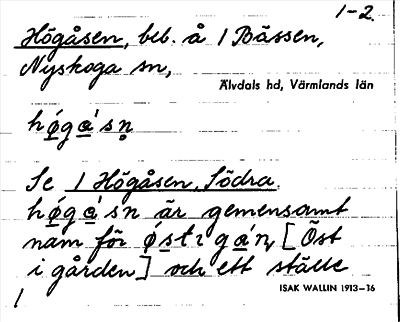 1-2.
Högåsen, beb. å 1 Bässen,
Nyskoga sn,
Älvdals hd, Värmlands län
hø̱ga̱'sn̥
Se 1 Högåsen, Södra.
hø̱ga̱'sn är gemensamt
namn för
i gården] och ett ställe
ISAK WALLIN 1913–16
1